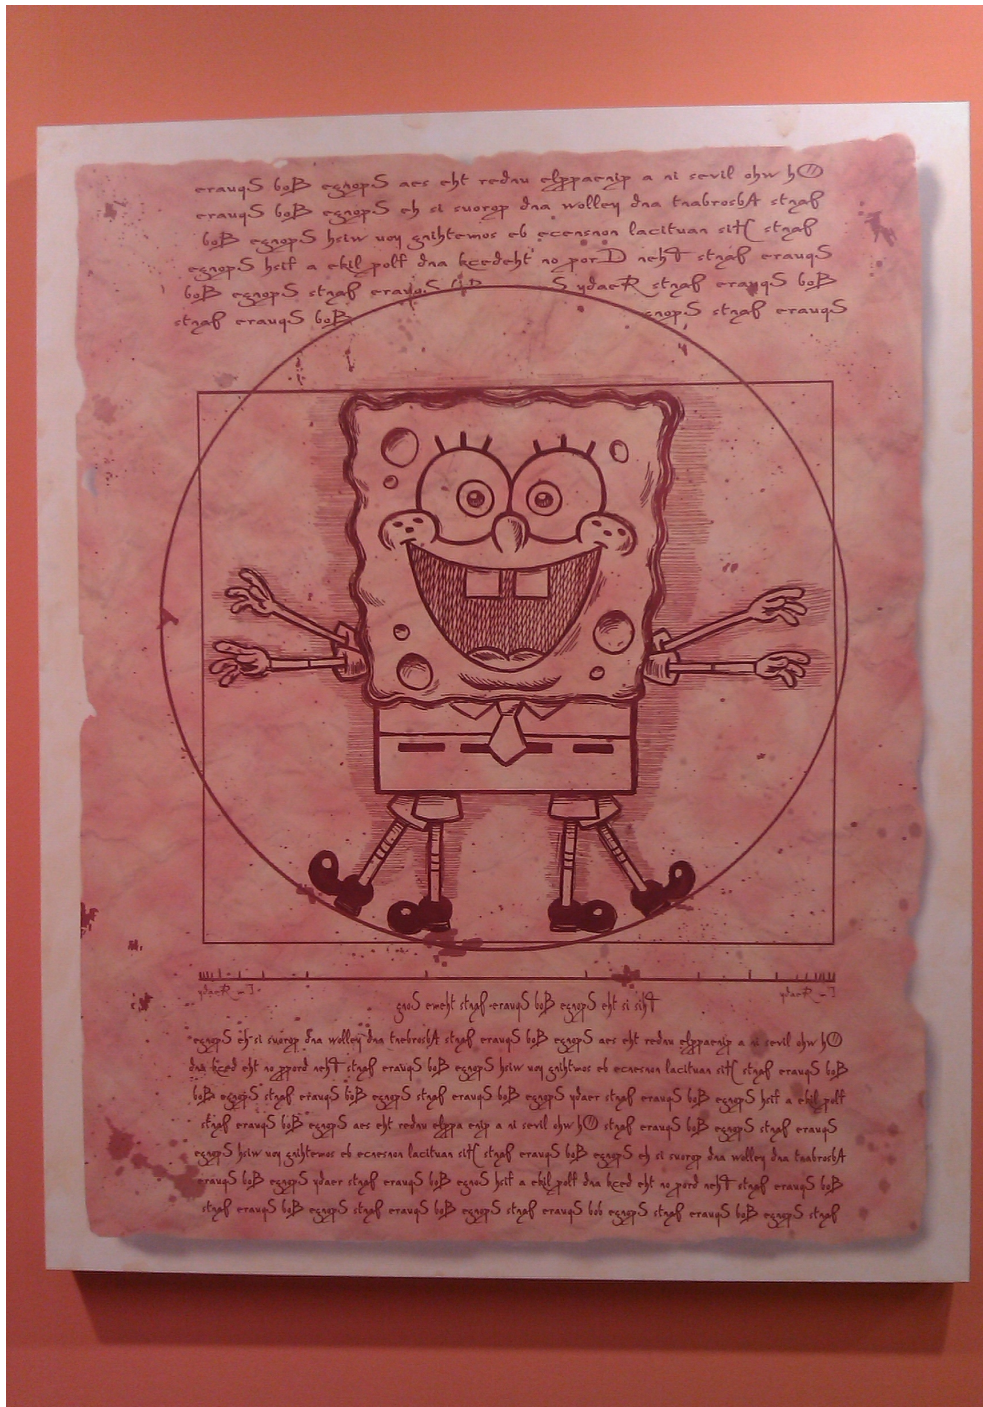 erauqS boB egnopS aes eht rednu elppaenip a ni sevil ohw hO
erauqS boB egnopS eh si suorop dna wolley dna tnabrosbA stnap
boB egnopS hsiw uoy gnihtemos eb ecnesnon lacituan stnap
egnopS hsif a ekil polf dna kcedeht no porD nehT stnap erauqS
boB egnopS stnap erauqS S ydaeR stnap erauqS boB
stnap erauqS boB egnopS stnap erauqS
ydaeR ydaeR
gnoS emeht stnap erauqS boB egnopS eht si sihT
egnopS eh si suorop dna wolley dna tnebrosbA stnap erauqS boB egnopS aes eht rednu elppaenip a ni sevil ohw hO
dna kced eht no ppord nehT stnap erauqS boB egnopS hsiw uoy gnihtemos eb ecnesnon lacituan stnap erauqS boB
boB egnopS stnap erauqS boB egnopS stnap erauqS boB egnopS ydaer stnap erauqS boB egnopS hsif a ekil polf
stnap erauqS boB egnopS aes eht rednu elppa enip a ni sevil ohw hO stnap erauqS boB egnopS stnap erauqS
egnopS hsiw uoy gnihtemos eb ecnesnon lacituan stnap erauqS boB egnopS eh si suorop dna wolley dna tnabrosbA
erauqS boB egnopS ydaer stnap erauqS boB egnoS hsif a ekil polf dna kced eht no pord nehT stnap erauqS boB
stnap erauqS boB egnopS stnap erauqS boB egnopS stnap erauqS bob egnopS stnap erauqS boB egnopS stnap